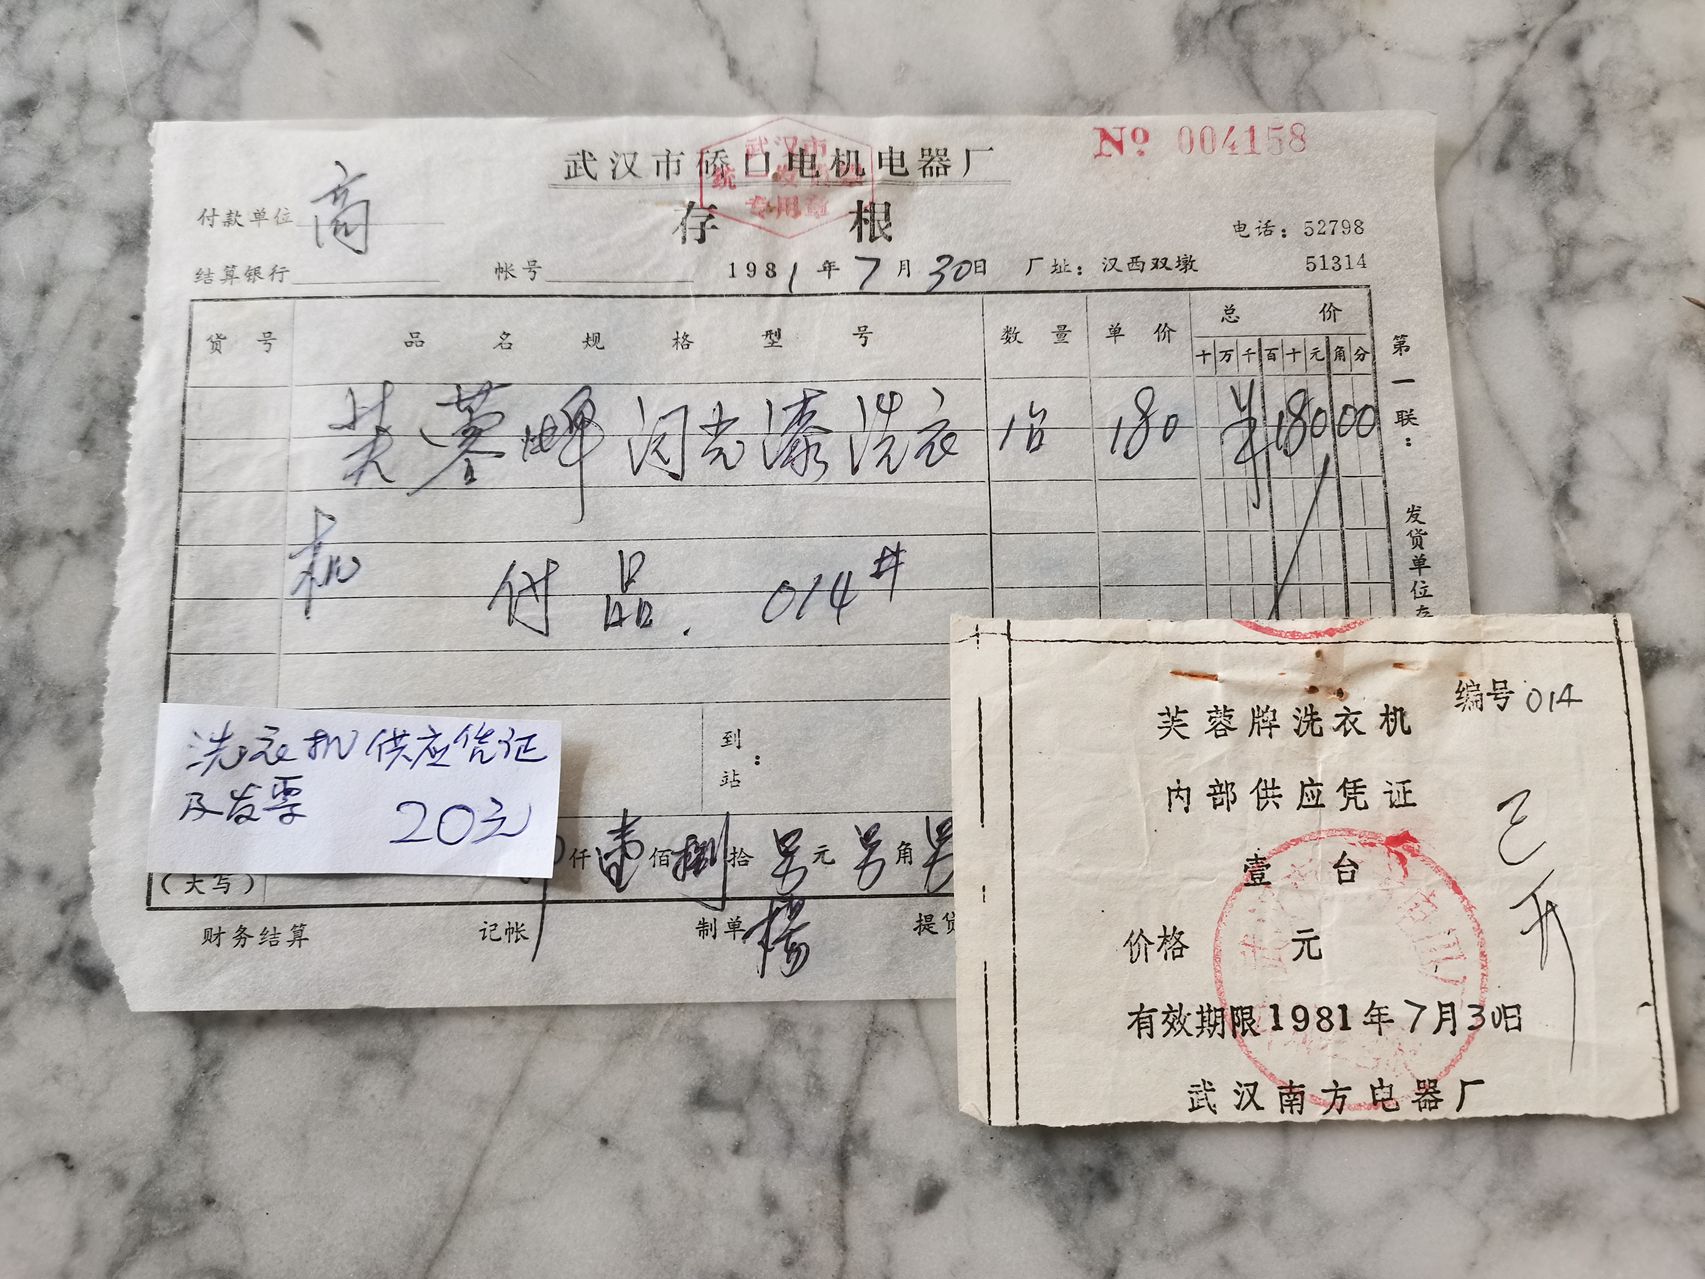 No 004158
武汉市硚口电机电器厂
武汉市
统一发
专用章
存 根
付款单位 商
电话：52798
51314
结算银行 帐号 1981年7月30日 厂址：汉西双墩
货号 品名规格型号 数量 单价 总价
十万千百十元角分
芙蓉牌闪光漆洗衣 1台 180 ¥18000
机 付品. 014#
第一联：
发货单位存
到站：
仟壹佰捌拾另元另角另
(大写)
财务结算 记帐 制单 杨 提货
洗衣机供应凭证
及发票 20元
编号 014
芙蓉牌洗衣机
内部供应凭证
壹 台
已开
价格 元
有效期限1981年7月30日
武汉南方电器厂